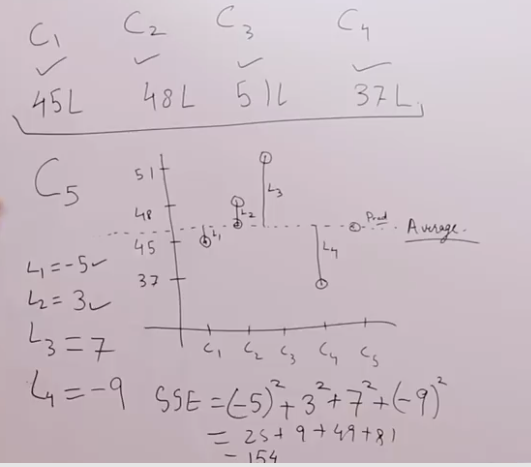 C1 C2 C3 C4
✓ ✓ ✓ ✓
45L 48L 51L 37L
C5
51
48
45
37
L1 L2 L3 L4
Pred
Average.
C1 C2 C3 C4 C5
L1 = -5 ✓
L2 = 3 ✓
L3 = 7
L4 = -9
SSE = (-5)² + 3² + 7² + (-9)²
= 25 + 9 + 49 + 81
- 154